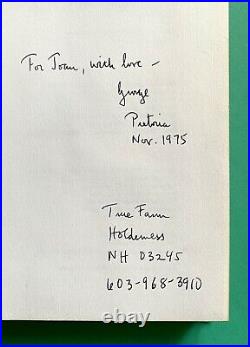 For Joan, with love –
George
Pretoria
Nov. 1975
True Farm
Holderness
NH 03245
603-968-3910
thumbimg.com